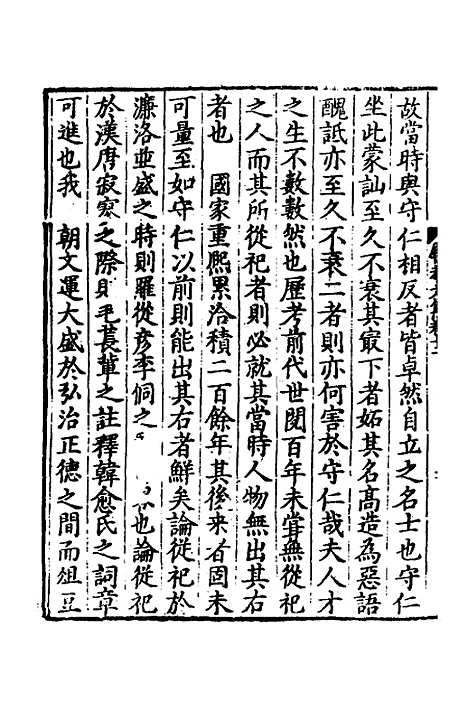 故當時與守仁相反者皆卓然自立之名士也守仁
坐此蒙訕至久不衰其最下者妬其名高造為惡語
醜詆亦至久不衰二者則亦何害於守仁哉夫人才
之生不數數然也歷考前代世閱百年未嘗無從祀
之人而其所從祀者則必就其當時人物無出其右
者也　國家重熙累洽積二百餘年其後來者固未
可量至如守仁以前則能出其右者鮮矣論從祀於
濂洛並盛之時則羅從彥李侗之也論從祀
於漢唐寂寞之際則毛萇軰之註釋韓愈氏之詞章
可進也我　朝文運大盛於弘治正德之間而俎豆